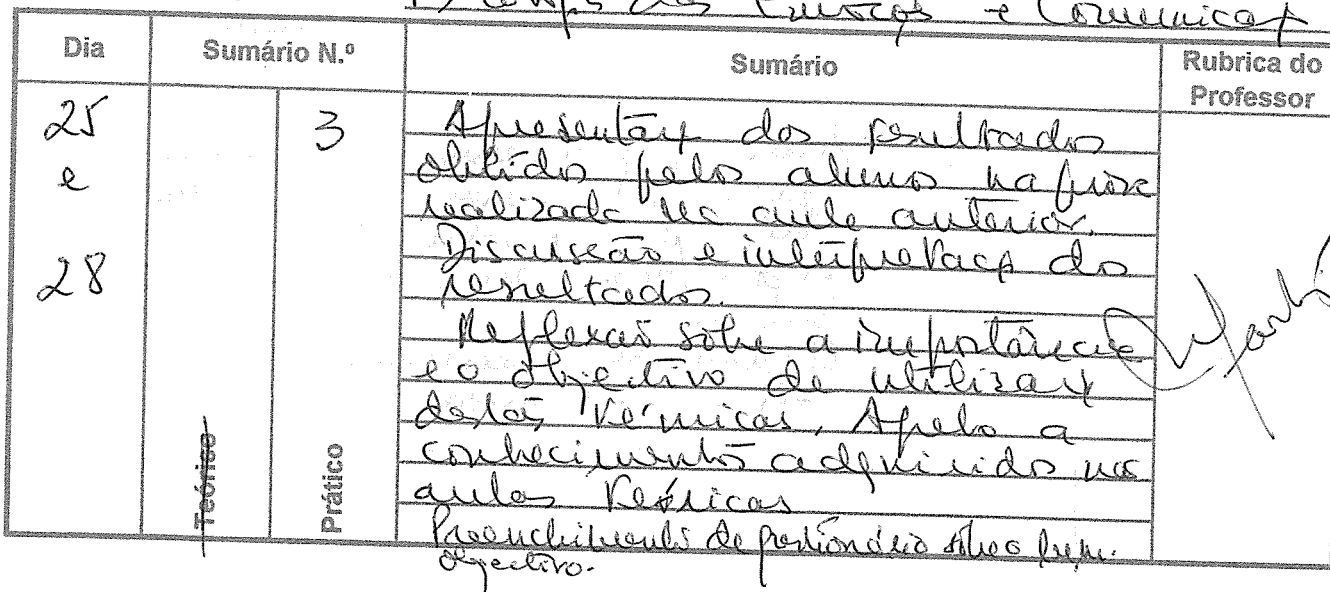 e
Dia
Sumário N.º
Sumário
Rubrica do
Professor
25
e
28
3
Teórico
Prático
Apresentação dos resultados
obtidos pelos alunos na
realizada na aula anterior.
Discussão e interpretação dos
resultados.
Reflexão sobre a importância
e o objectivo de utilização
destas técnicas. Apelo a
conhecimentos adquiridos nas
aulas teóricas
Preenchimento de
objectivo.